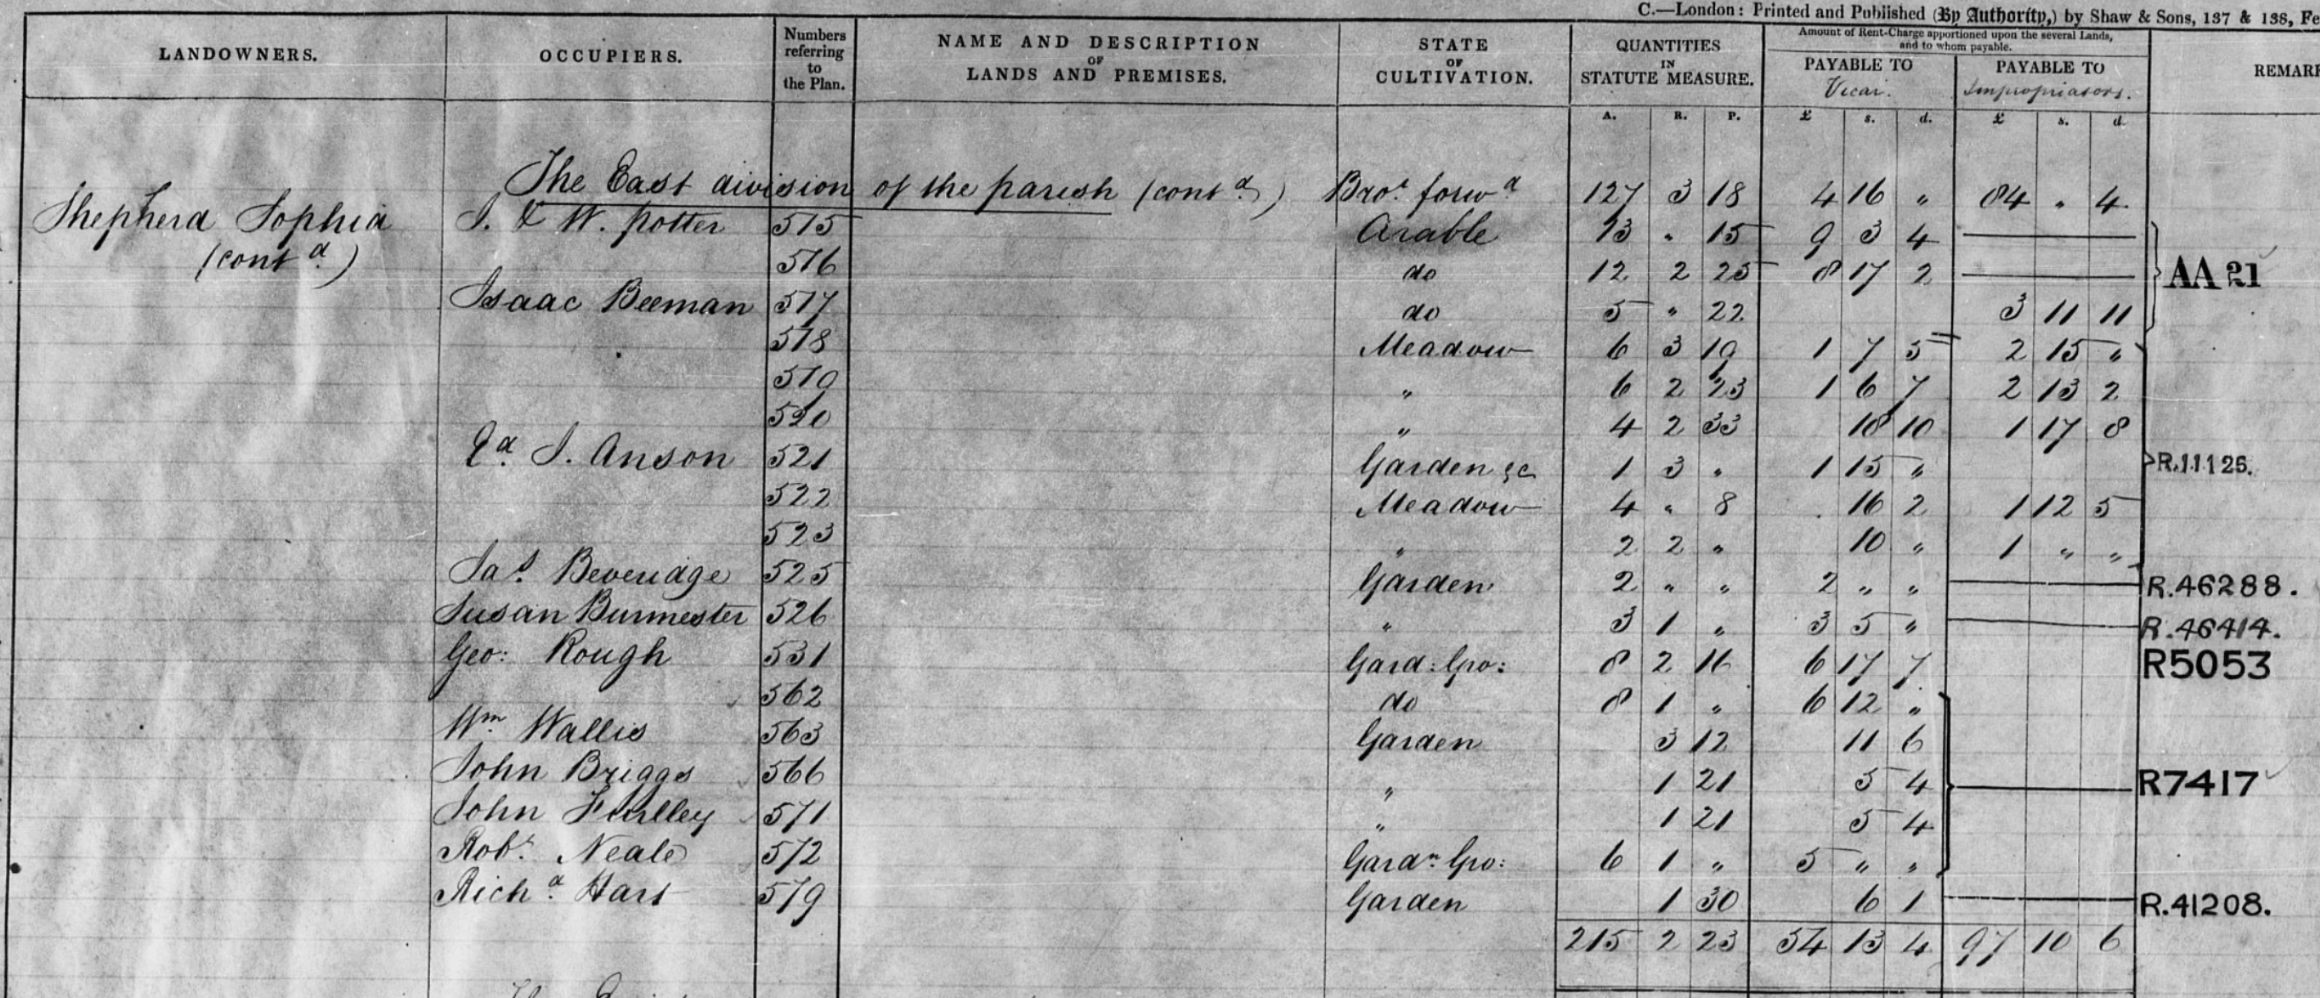 C.—London: Printed and Published (By Authority,) by Shaw & Sons, 137 & 138, Fe
LANDOWNERS. OCCUPIERS. Numbers referring to the Plan. NAME AND DESCRIPTION OF LANDS AND PREMISES. STATE OF CULTIVATION. QUANTITIES IN STATUTE MEASURE. Amount of Rent-Charge apportioned upon the several Lands, and to whom payable. REMARK
PAYABLE TO Vicar. PAYABLE TO Impropriators.
A. R. P. £ s. d. £ s. d.
The East division of the parish (contd.) Brot. forwd 127 3 18 4 16 " 84 " 4
Shepherd Sophia J. & W. Potter 515 Arable 13 " 15 9 3 4 —
(contd.) 516 do 12 2 25 8 17 2 — AA 21
Isaac Beeman 517 do 5 " 22 3 11 11
518 Meadow 6 3 19 1 7 5 2 15 "
519 " 6 2 23 1 6 7 2 13 2
520 " 4 2 33 18 10 1 17 8
Ed. J. Anson 521 Garden &c 1 3 " 1 15 " R.11125.
522 Meadow 4 " 8 16 2 1 12 5
523 " 2 2 " 10 " 1 " "
Jas. Beveridge 525 Garden 2 " " 2 " " — R.46288.
Susan Burmester 526 " 3 1 " 3 5 " — R.46414.
Geo: Rough 531 Gard: Gro: 8 2 16 6 17 7 R5053
562 do 8 1 " 6 12 "
Wm. Wallis 563 Garden 3 12 11 6
John Briggs 566 " 1 21 5 4 — R7417
John 571 " 1 21 5 4
Robt. Neale 572 Gardn. Gro: 6 1 " 5 " "
Richd. Hart 579 Garden 1 30 6 1 — R.41208.
215 2 23 54 13 4 97 10 6